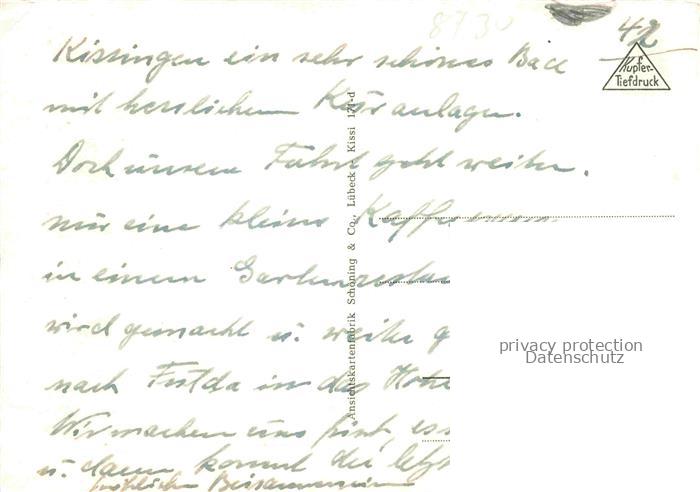 87 30
42
Kupfer-
Tiefdruck
Kissingen ein sehr schönes Bad
mit herrlichen Kuranlagen.
Doch unsere Fahrt geht weiter.
nur eine kleine
in einem
wird gemacht u. weiter g
nach Fulda in das Hote
Wir machen uns
u. dann kommt die letzt
fröhlichen Beisammensein
Ansichtskartenfabrik Schöning & Co., Lübeck Kissi 174-d
privacy protection
Datenschutz